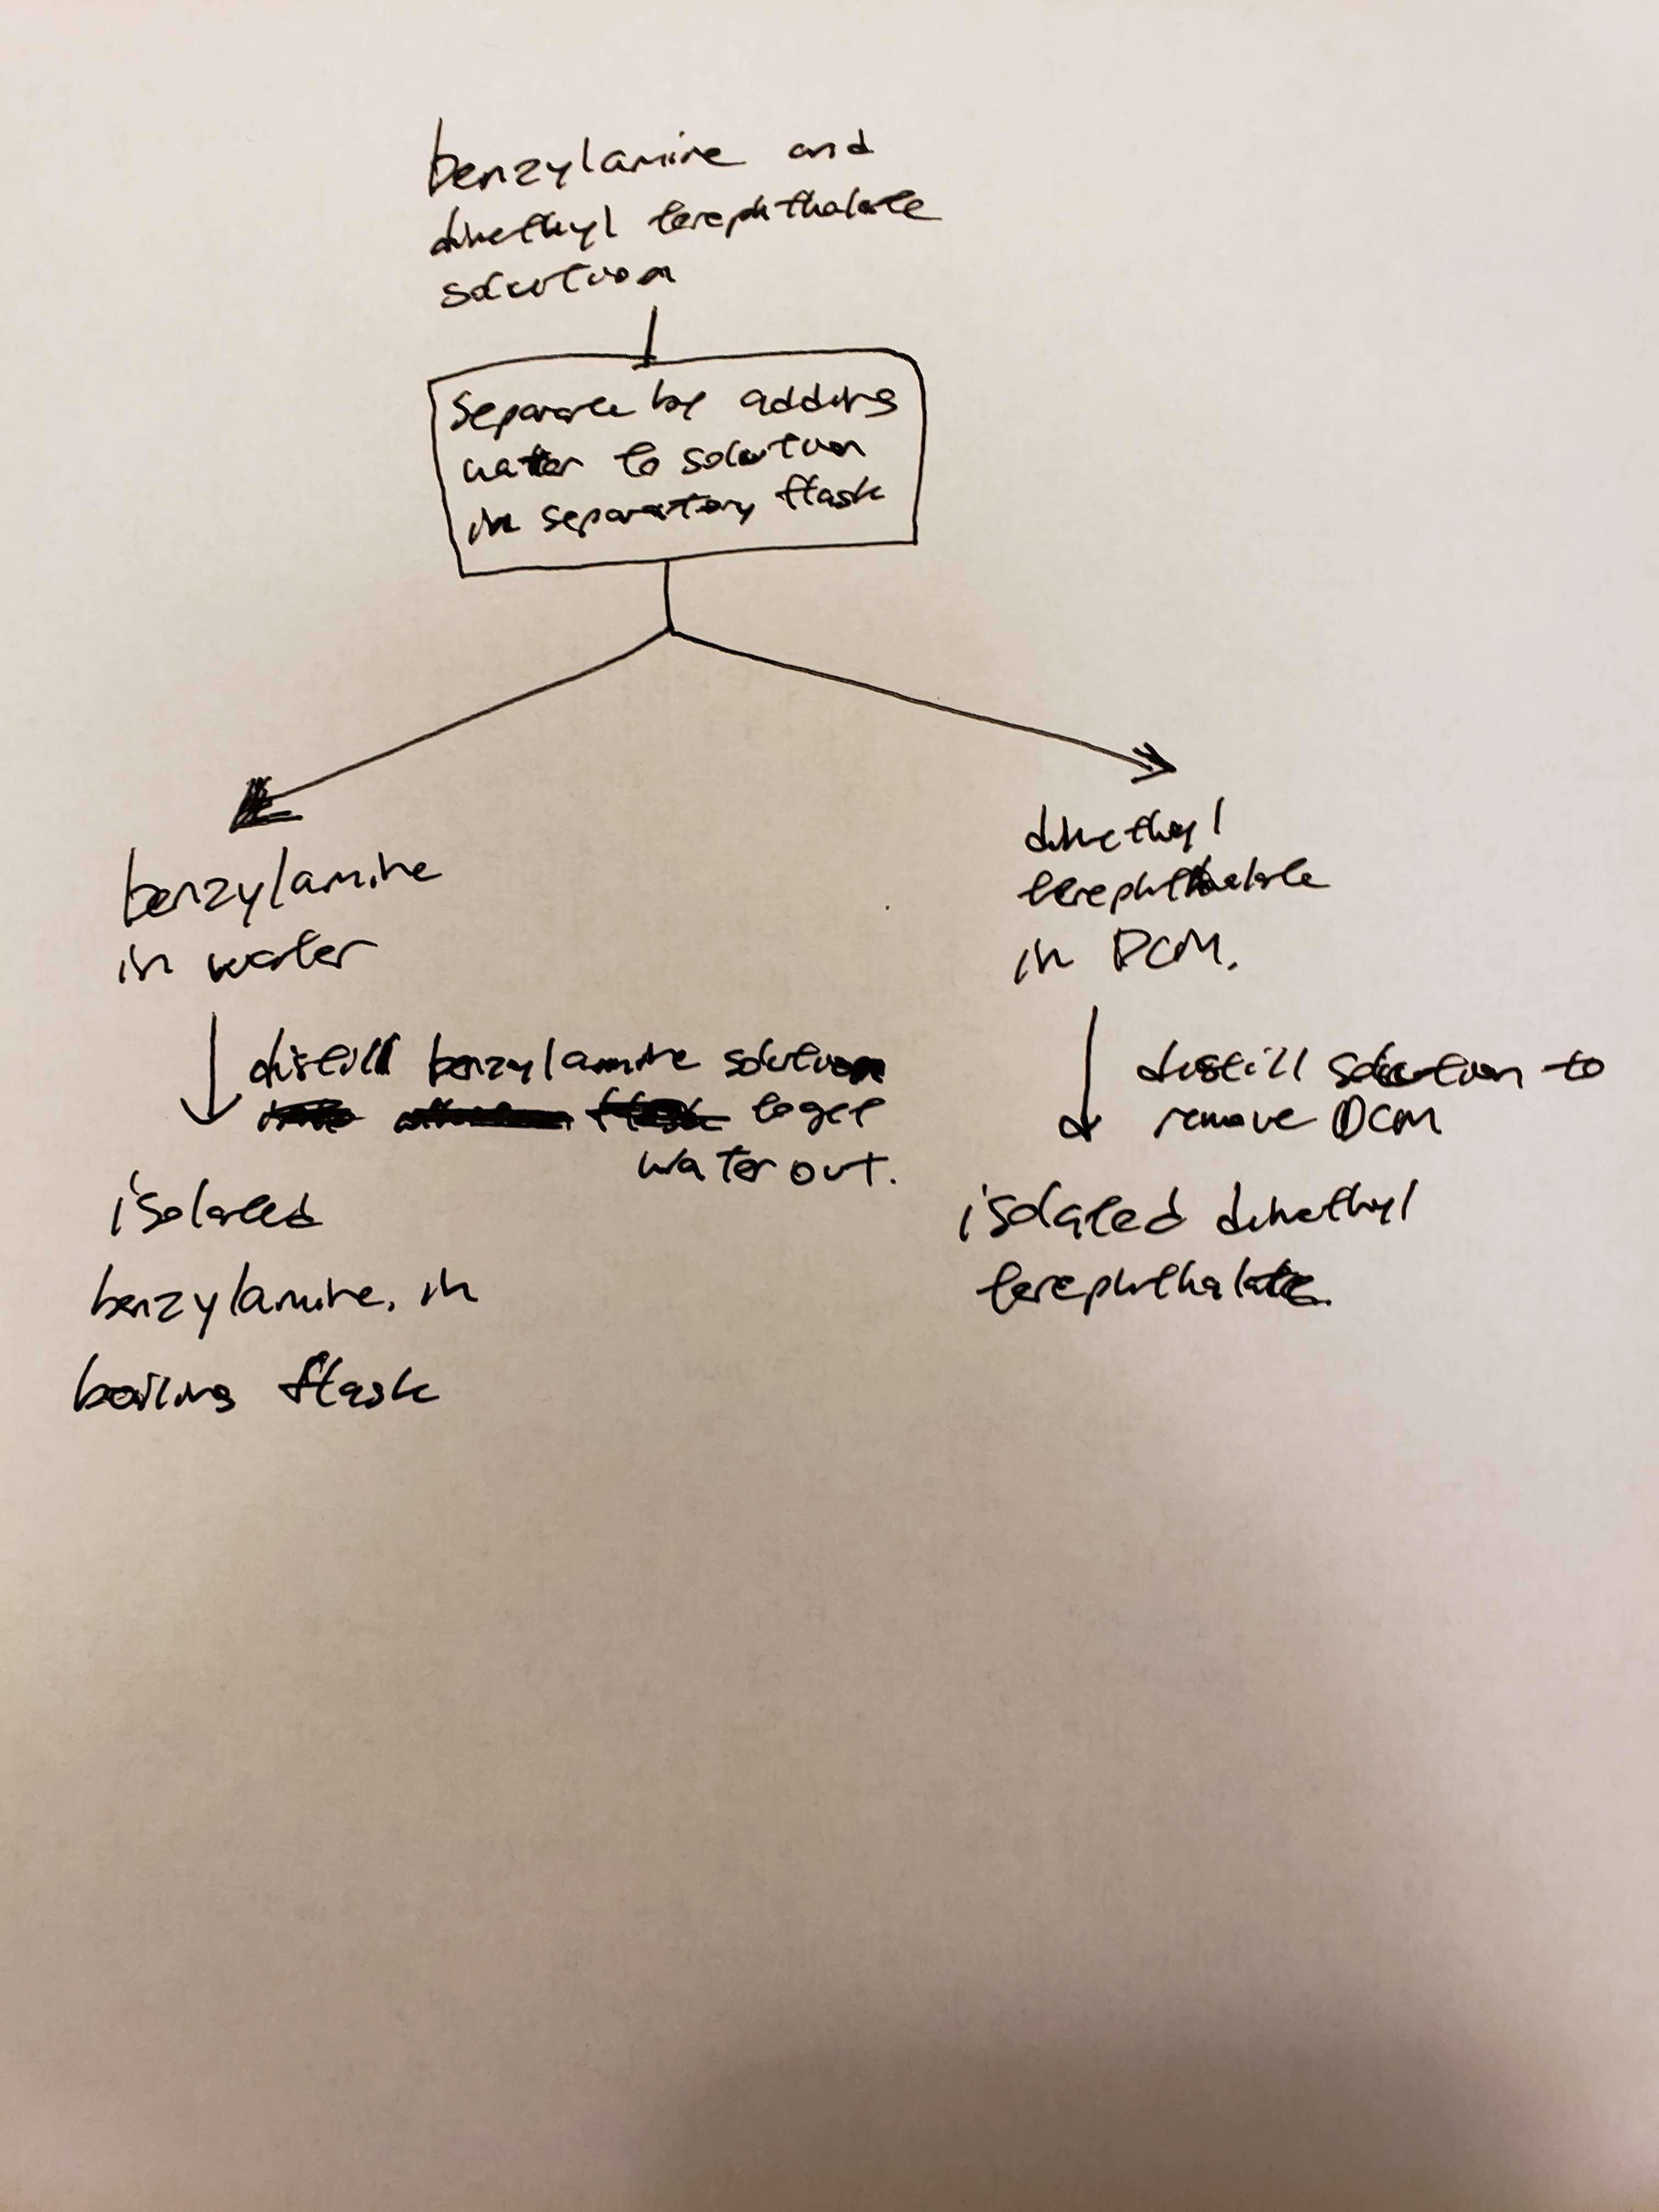 benzylamine and
dimethyl terephthalate
solution
Separate by adding
water to solution
in separatory flask
benzylamine
in water
distill benzylamine solution
to get
water out.
isolated
benzylamine. in
boiling flask
dimethyl
terephthalate
in DCM.
distill solution to
remove DCM
isolated dimethyl
terephthalate.